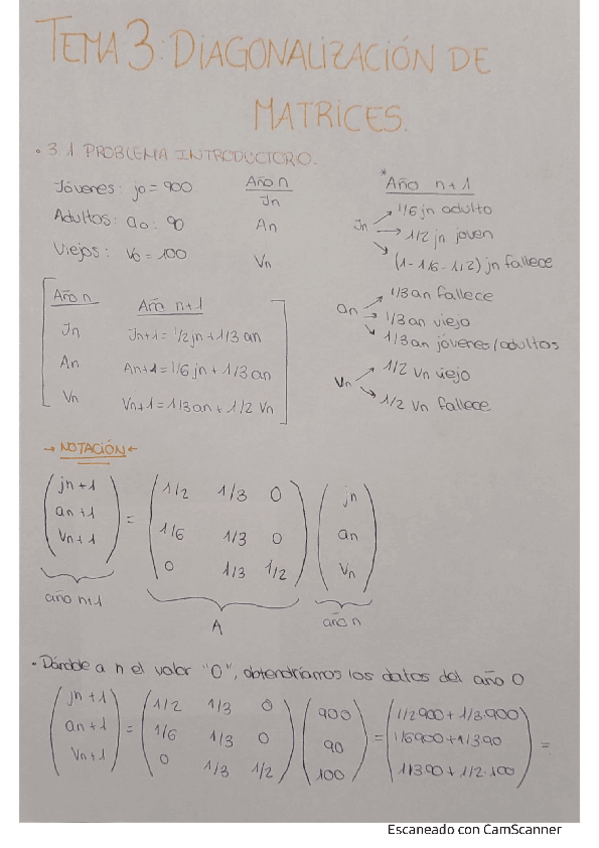 TEMA 3: DIAGONALIZACIÓN DE
MATRICES.
• 3.1. PROBLEMA INTRODUCTORO.
Jóvenes: jo = 900
Adultos: ao: 90
Viejos: Vo = 100
Año n
Jn
An
Vn
*Año n+1
Jn → 1/6 jn adulto
→ 1/2 jn joven
→ (1-1/6-1/2) jn fallece
an → 1/3 an fallece
→ 1/3 an viejo
→ 1/3 an jóvenes/adultos
Vn → 1/2 Vn viejo
→ 1/2 Vn fallece
Año n Año n+1
Jn Jn+1 = 1/2 jn + 1/3 an
An An+1 = 1/6 jn + 1/3 an
Vn Vn+1 = 1/3 an + 1/2 Vn
→ NOTACIÓN ←
(jn+1) = (1/2 1/3 0) (jn)
(an+1) (1/6 1/3 0) (an)
(Vn+1) (0 1/3 1/2) (Vn)
año n+1 A año n
• Dándole a n el valor "0", obtendríamos los datos del año 0
(jn+1) = (1/2 1/3 0) (900) = (1/2·900 + 1/3·900) =
(an+1) (1/6 1/3 0) (90) (1/6900 + 1/390)
(Vn+1) (0 1/3 1/2) (100) (1/390 + 1/2·100)
Escaneado con CamScanner